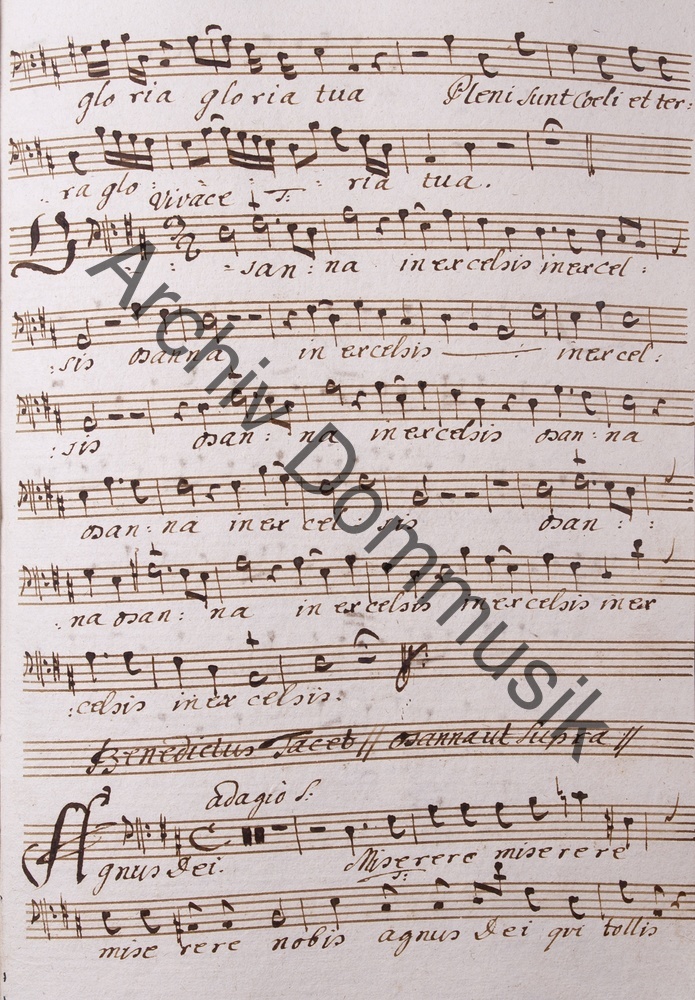 glo ria glo ria tua Pleni sunt Coeli et ter:
ra glo : : : ria tua.
Vivace T:
O : : - san : na in excelsis in excel :
: sis osanna in excelsis in excel :
: sis osan : na in excelsis osan : na
osan : na in ex cel : sis osan : :
: na osan : na in excelsis in excelsis in ex
: celsis in ex celsis.
Benedictus Tacet // osanna ut Supra //
adagio S:
Agnus Dei. Miserere miserere
T:
mise rere nobis agnus Dei qui tollis
Archiv Dommusik